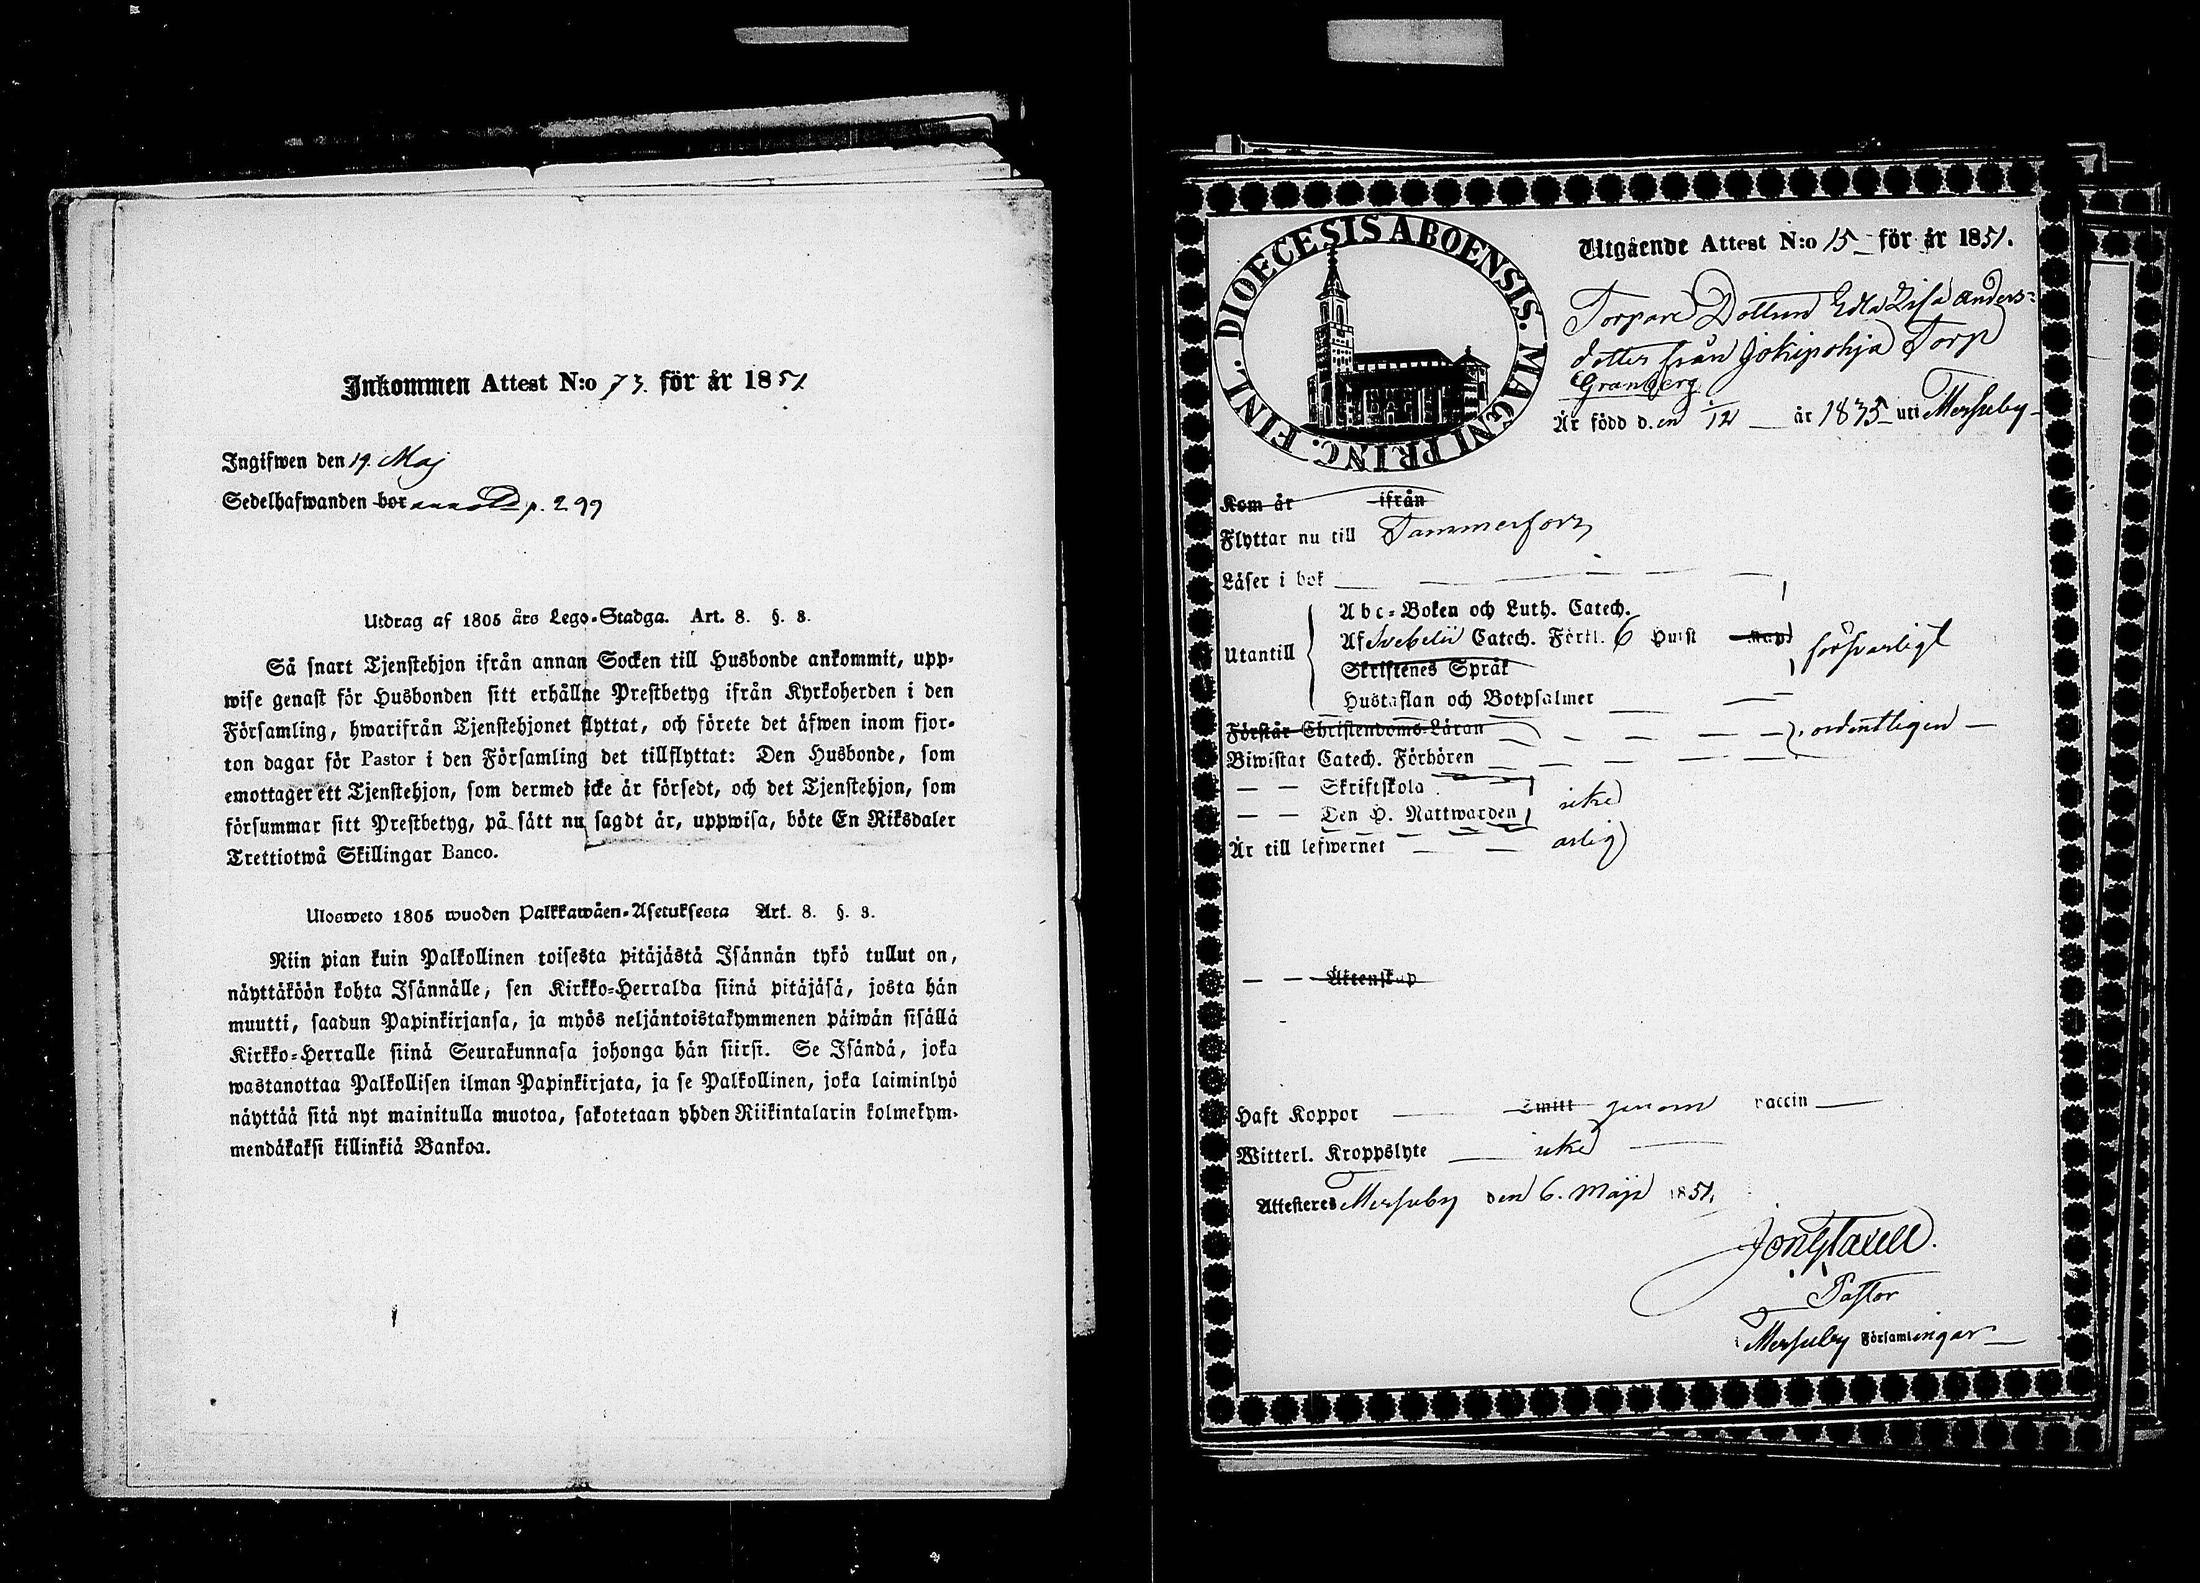 Inkommen Attest N:o 73. för år 1851
Ingifwen den 19. Maj
Sedelhafwanden bor p. 299
Utdrag af 1805 års Lego-Stadga. Art. 8. §. 3.
Så snart Tjenstehjon ifrån annan Socken till Husbonde ankommit, upp-
wise genast för Husbonden sitt erhållne Prestbetyg ifrån Kyrkoherden i den
Församling, hwarifrån Tjenstehjonet flyttat, och förete det äfwen inom fjor-
ton dagar för Pastor i den Församling det tillflyttat: Den Husbonde, som
emottager ett Tjenstehjon, som dermed icke är försedt, och det Tjenstehjon, som
försummar sitt Prestbetyg, på sätt nu sagdt är, uppwisa, böte En Riksdaler
Trettiotwå Skillingar Banco.
Ulosweto 1805 wuoden Palkkawäen-Asetuksesta Art. 8. §. 3.
Niin pian kuin Palkollinen toisesta pitäjästä Isännän tykö tullut on,
näyttäköön kohta Isännälle, sen Kirkko-Herralda siinä pitäjäsä, josta hän
muutti, saadun Papinkirjansa, ja myös neljäntoistakymmenen päiwän sisällä
Kirkko-Herralle siinä Seurakunnasa johonga hän siirsi. Se Isändä, joka
wastanottaa Palkollisen ilman Papinkirjata, ja se Palkollinen, joka laiminlyö
näyttää sitä nyt mainitulla muotoa, sakotetaan yhden Riikintalarin kolmekym-
mendäkaksi killinkiä Bankoa.
DIOECESIS ABOENSIS. MAGNI PRINC. FINL.
Utgående Attest N:o 15 för år 1851.
Torpare Dottren Edla Lisa Anders-
dotter från Jokipohja Torp
Granberg
Är född den 1/12 år 1835 uti Messuby
Kom år ifrån
Flyttar nu till Tammerfors
Läser i bok
Utantill
Abc-Boken och Luth. Catech.
Af Svebelii Catech. Förkl. 6 Hufst kap
Skriftenes Språk
försvarligt
Hustaflan och Botpsalmer
Förstår Christendoms-Läran
ordentligen
Biwistat Catech. Förhören
— — Skriftskola
— — Den H. Nattwarden
icke
Är till lefwernet ärlig
— — Äktenskap
Haft Koppor Smitt genom vaccin
Witterl. Kroppslyte icke
Attesteres Messuby den 6. Maji 1851.
Pastor
Messuby Församlingar